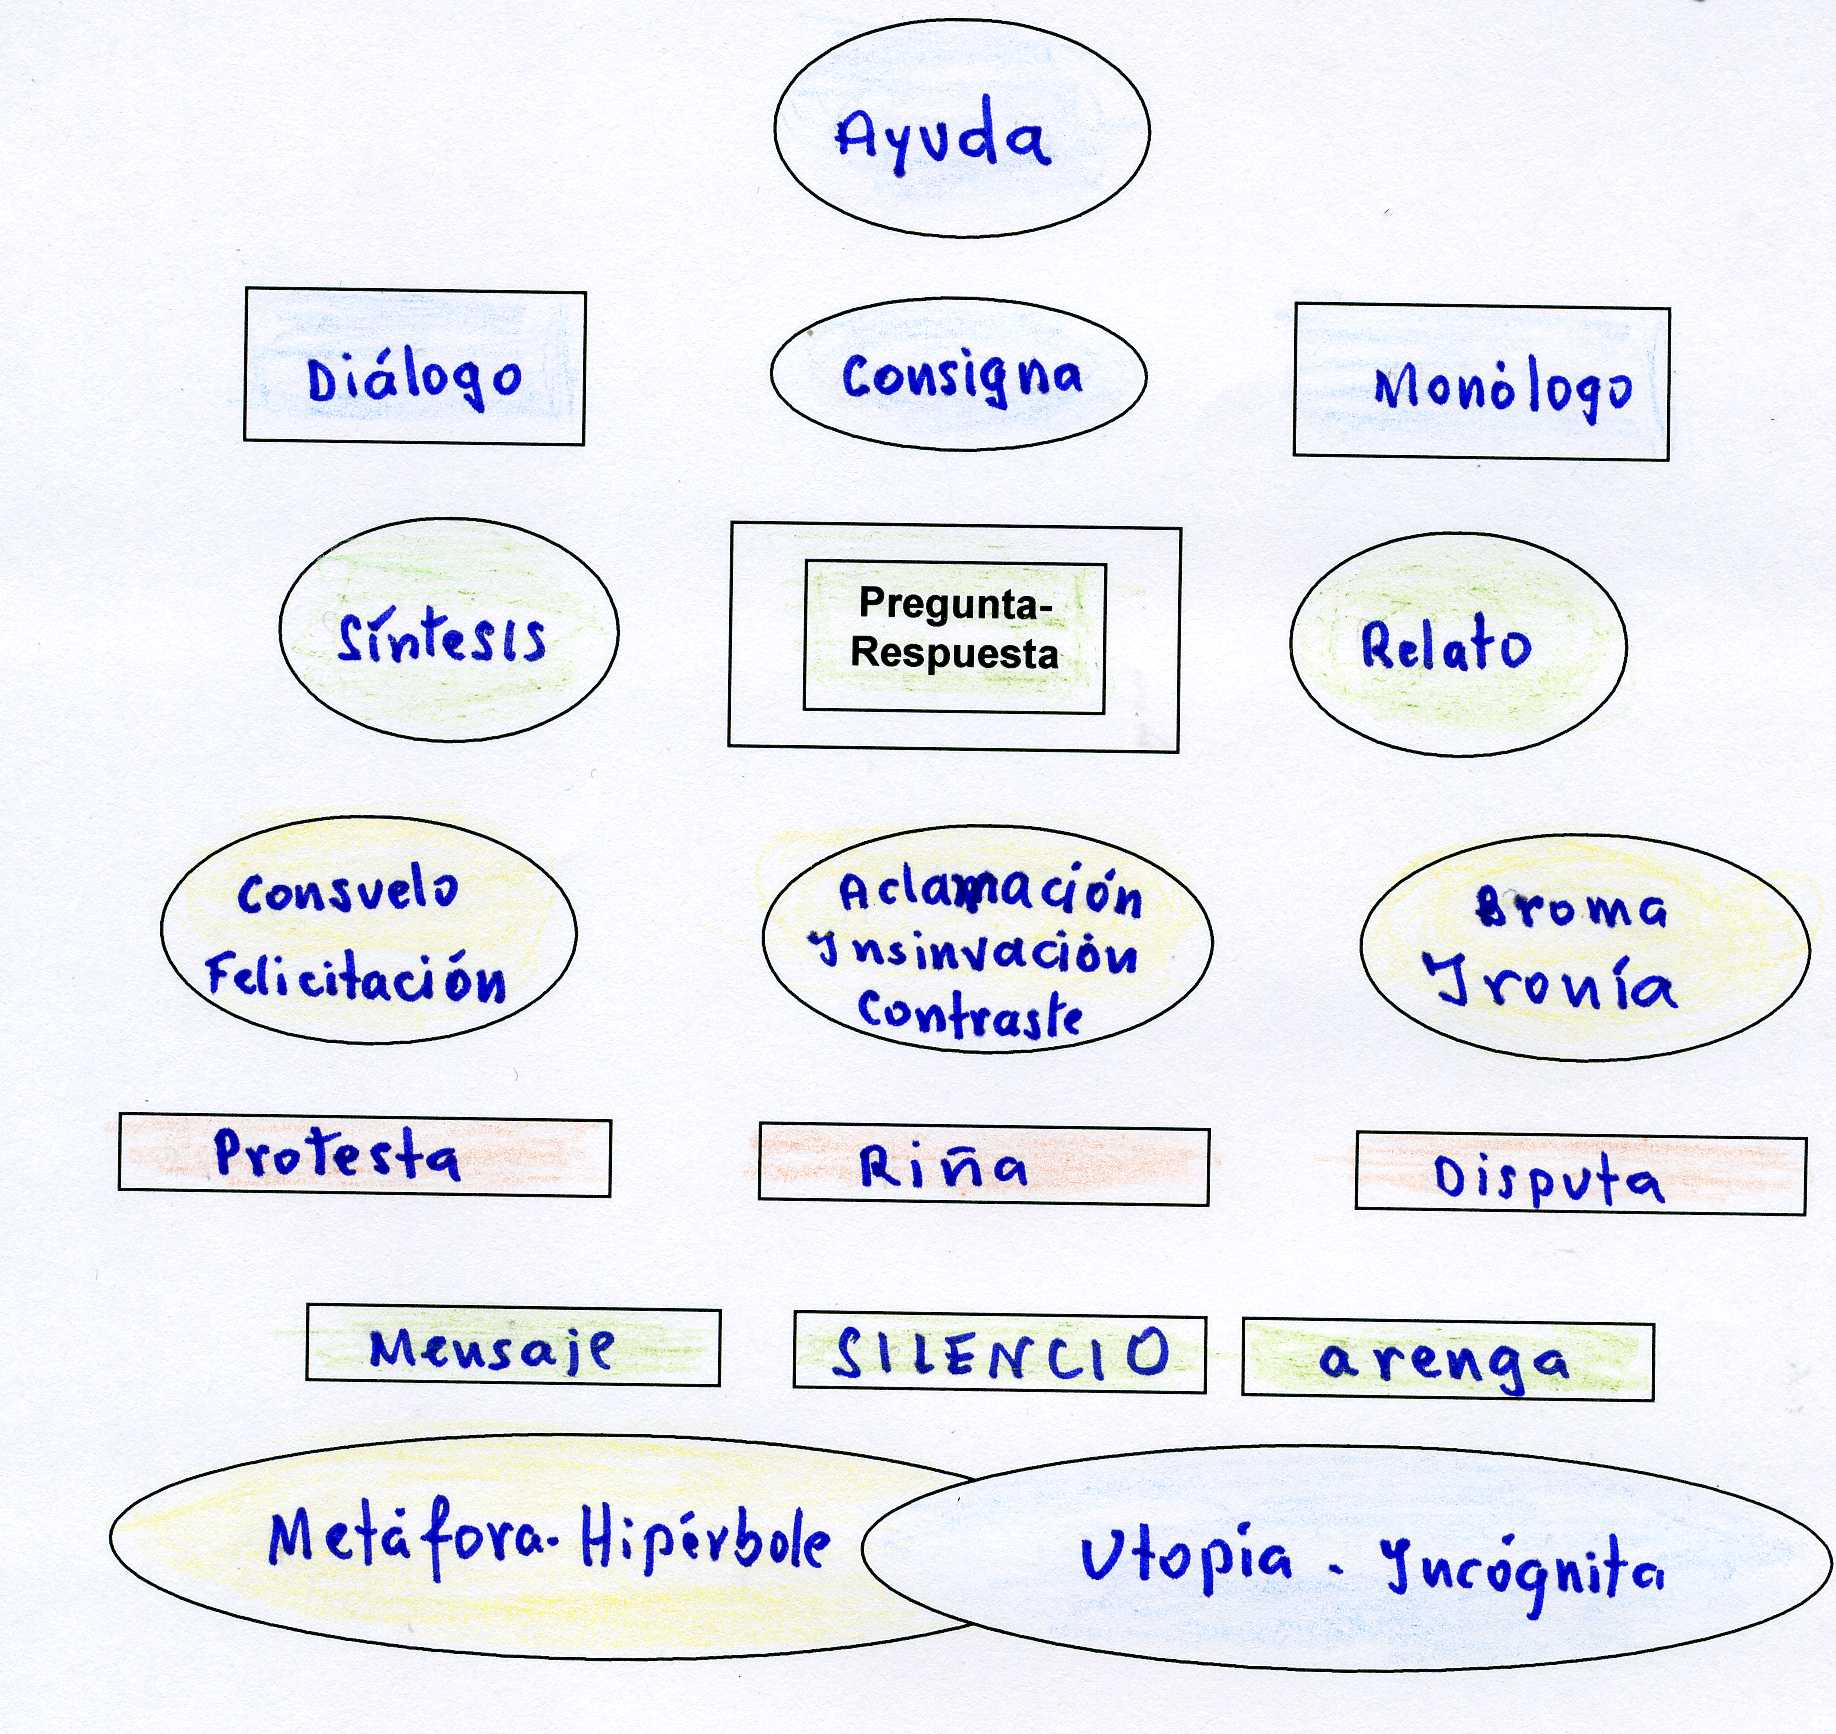 Ayuda
Diálogo
Consigna
Monólogo
Síntesis
Pregunta-
Respuesta
Relato
Consuelo
Felicitación
Aclamación
Insinuación
Contraste
Broma
Ironía
Protesta
Riña
Disputa
Mensaje
SILENCIO
arenga
Metáfora-Hipérbole
Utopía - Incógnita